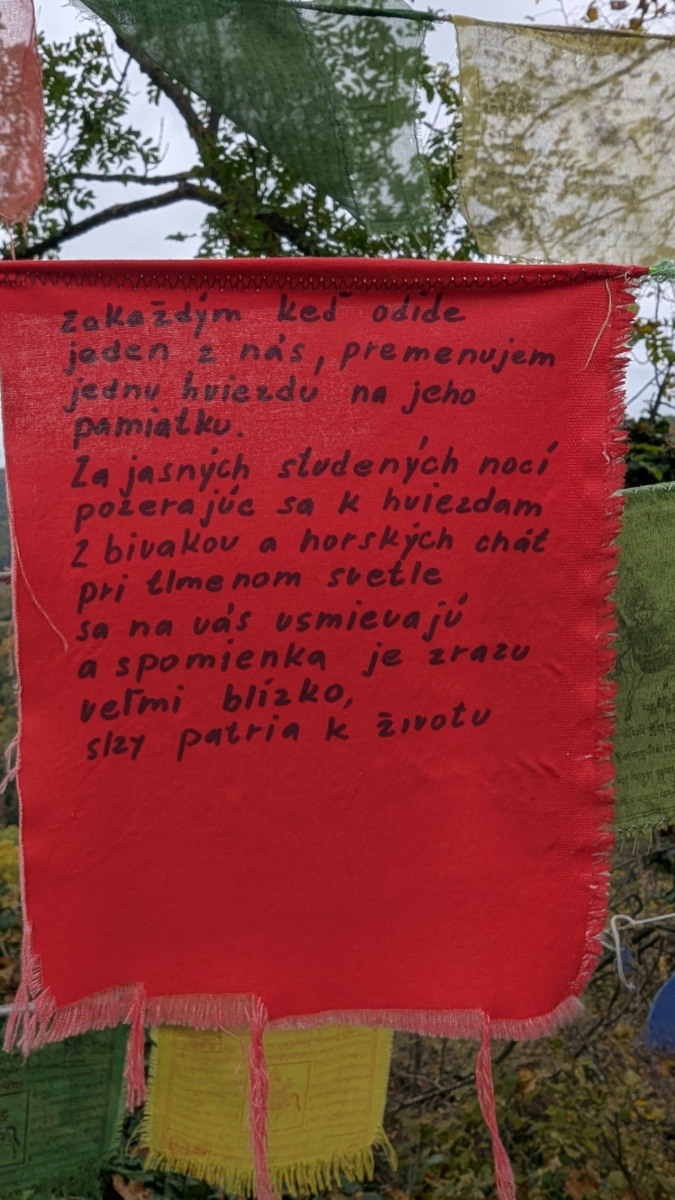 zakaždým keď odíde
jeden z nás, premenujem
jednu hviezdu na jeho
pamiatku.
Za jasných studených nocí
pozerajúc sa k hviezdam
z bivakov a horských chát
pri tlmenom svetle
sa na vás usmievajú
a spomienka je zrazu
veľmi blízko,
slzy patria k životu